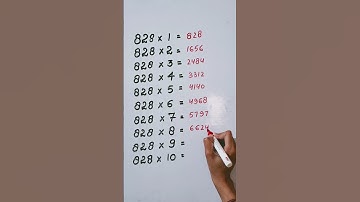 828 x 1 = 828
828 x 2 = 1656
828 x 3 = 2484
828 x 4 = 3312
828 x 5 = 4140
828 x 6 = 4968
828 x 7 = 5797
828 x 8 = 6624
828 x 9 =
828 x 10 =